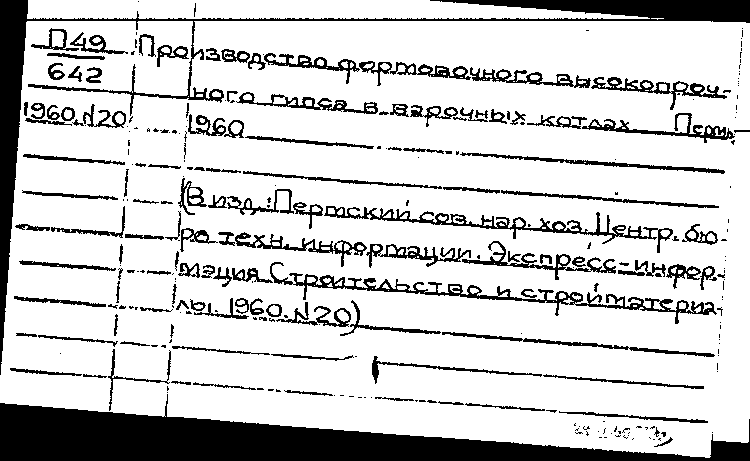 П49
642
1960.N20
Производство формовочного высокопроч-
ного гипса в варочных котлах Пермь
1960
(В изд.: Пермский сов. нар. хоз. Центр. бю-
ро техн. информации. Экспресс-инфор-
мация Строительство и стройматериа-
лы. 1960. N20)